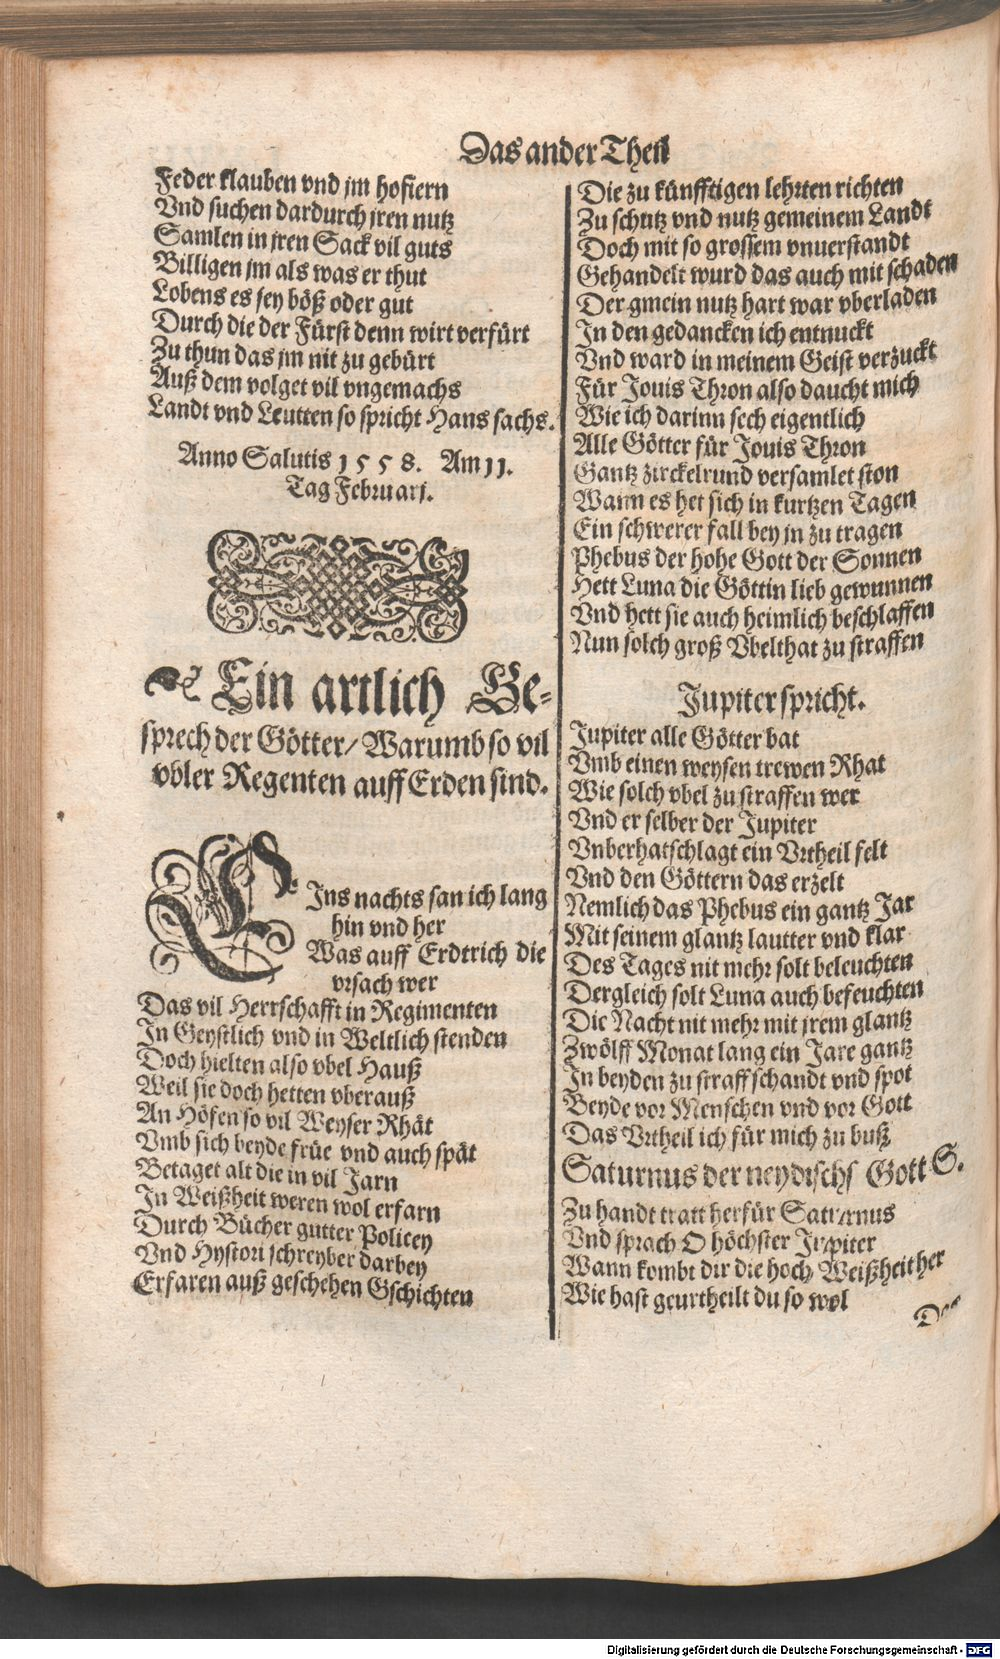 Das ander Theil
Feder klauben vnd jm hofiern
Vnd suchen dardurch jren nutz
Samlen in jren Sack vil guts
Billigen jm als was er thut
Lobens es sey böß oder gut
Durch die der Fürst denn wirt verfürt
Zu thun das jm nit zu gebürt
Auß dem volget vil vngemachs
Landt vnd Leutten so spricht Hans sachs.
Anno Salutis 1558. Am 11.
Tag Februarj.
Ein artlich Ge-
sprech der Götter/ Warumb so vil
vbler Regenten auff Erden sind.
EIns nachts san ich lang
hin vnd her
Was auff Erdtrich die
vrsach wer
Das vil Herrschafft in Regimenten
In Geystlich vnd in Weltlich stenden
Doch hielten also vbel Hauß
Weil sie doch hetten vberauß
An Höfen so vil Weyser Rhät
Vmb sich beyde früe vnd auch spät
Betaget alt die in vil Jarn
In Weißheit weren wol erfarn
Durch Bücher gutter Policey
Vnd Hystori schreyber darbey
Erfaren auß geschehen Gschichten
Die zu künfftigen lehrten richten
Zu schutz vnd nutz gemeinem Landt
Doch mit so grossem vnuerstandt
Gehandelt wurd das auch mit schaden
Der gmein nutz hart war vberladen
In den gedancken ich entnuckt
Vnd ward in meinem Geist verzuckt
Für Jouis Thron also daucht mich
Wie ich darinn sech eigentlich
Alle Götter für Jouis Thron
Gantz zirckelrund versamlet ston
Wann es het sich in kurtzen Tagen
Ein schwerer fall bey jn zu tragen
Phebus der hohe Gott der Sonnen
Hett Luna die Göttin lieb gewunnen
Vnd hett sie auch heimlich beschlaffen
Nun solch groß Vbelthat zu straffen
Jupiter spricht.
Jupiter alle Götter bat
Vmb einen weysen trewen Rhat
Wie solch vbel zu straffen wer
Vnd er selber der Jupiter
Vnberhatschlagt ein Vrtheil felt
Vnd den Göttern das erzelt
Nemlich das Phebus ein gantz Jar
Mit seinem glantz lautter vnd klar
Des Tages nit mehr solt beleuchten
Dergleich solt Luna auch befeuchten
Die Nacht nit mehr mit jrem glantz
Zwölff Monat lang ein Jare gantz
In beyden zu straff schandt vnd spot
Beyde vor Menschen vnd vor Gott
Das Vrtheil ich für mich zu buß
Saturnus der neydischs Gott S.
Zu handt tratt herfür Saturnus
Vnd sprach O höchster Jupiter
Wann kombt dir die hoch Weißheit her
Wie hast geurtheilt du so wol
Digitalisierung gefördert durch die Deutsche Forschungsgemeinschaft - DFG